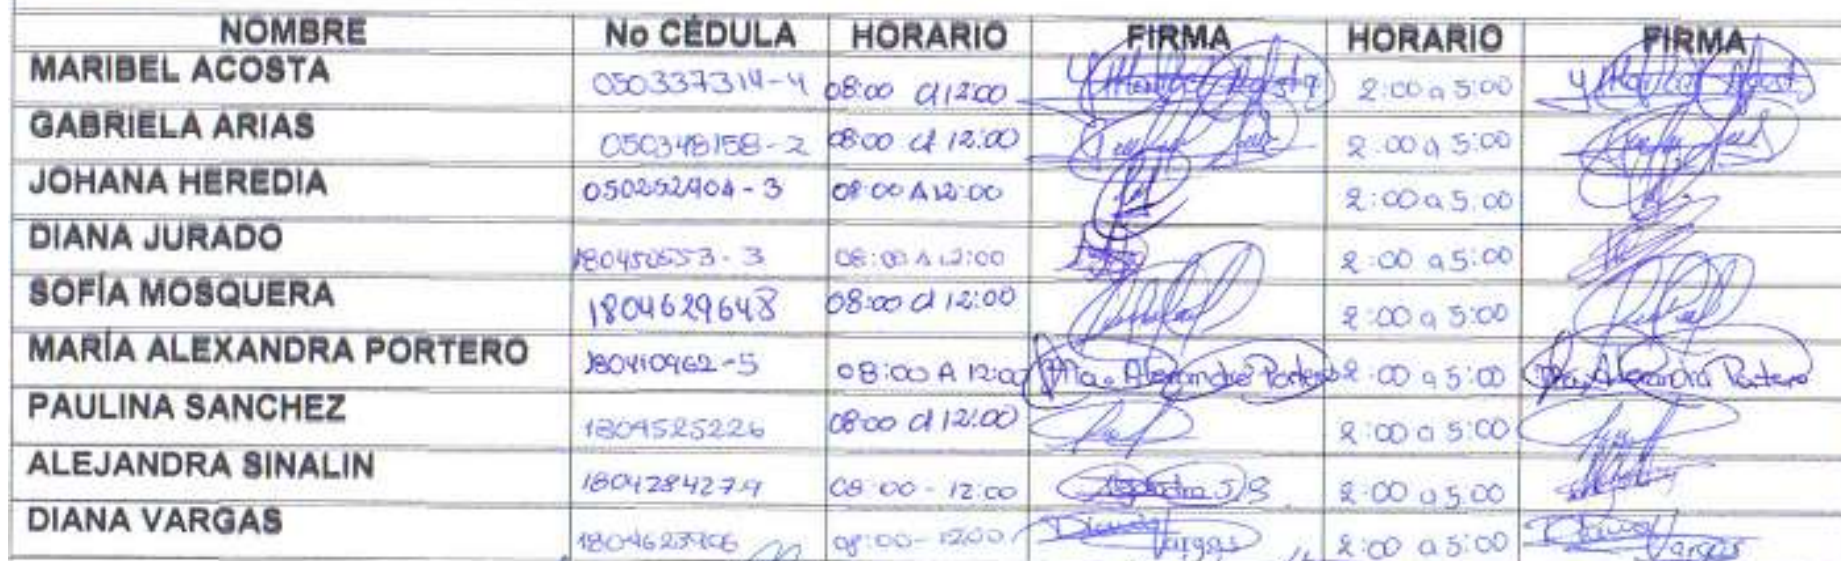 NOMBRE No CÉDULA HORARIO FIRMA HORARIO FIRMA
MARIBEL ACOSTA 050337314-4 08:00 a 12:00 Maribel Acosta 2:00 a 5:00 Maribel Acosta
GABRIELA ARIAS 050348158-2 08:00 a 12:00 2:00 a 5:00
JOHANA HEREDIA 050252404-3 08:00 A 12:00 2:00 a 5:00
DIANA JURADO 180450553-3 08:00 A 12:00 2:00 a 5:00
SOFÍA MOSQUERA 1804629648 08:00 a 12:00 2:00 a 5:00
MARÍA ALEXANDRA PORTERO 180410962-5 08:00 A 12:00 Ma. Alexandra Portero 2:00 a 5:00 Ma. Alexandra Portero
PAULINA SANCHEZ 1804525226 08:00 a 12:00 2:00 a 5:00
ALEJANDRA SINALIN 1804284279 08:00 - 12:00 Alejandra S 2:00 a 5:00
DIANA VARGAS 08:00 - 12:00 Diana Vargas 2:00 a 5:00 Diana Vargas